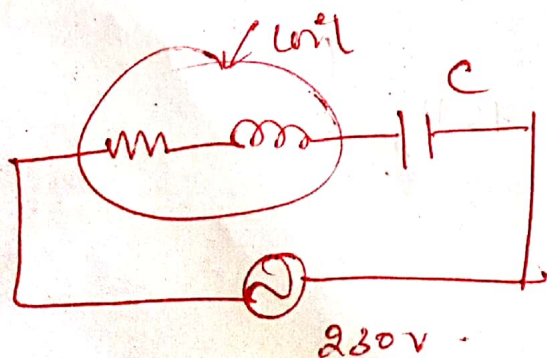 coil
C
230 v.